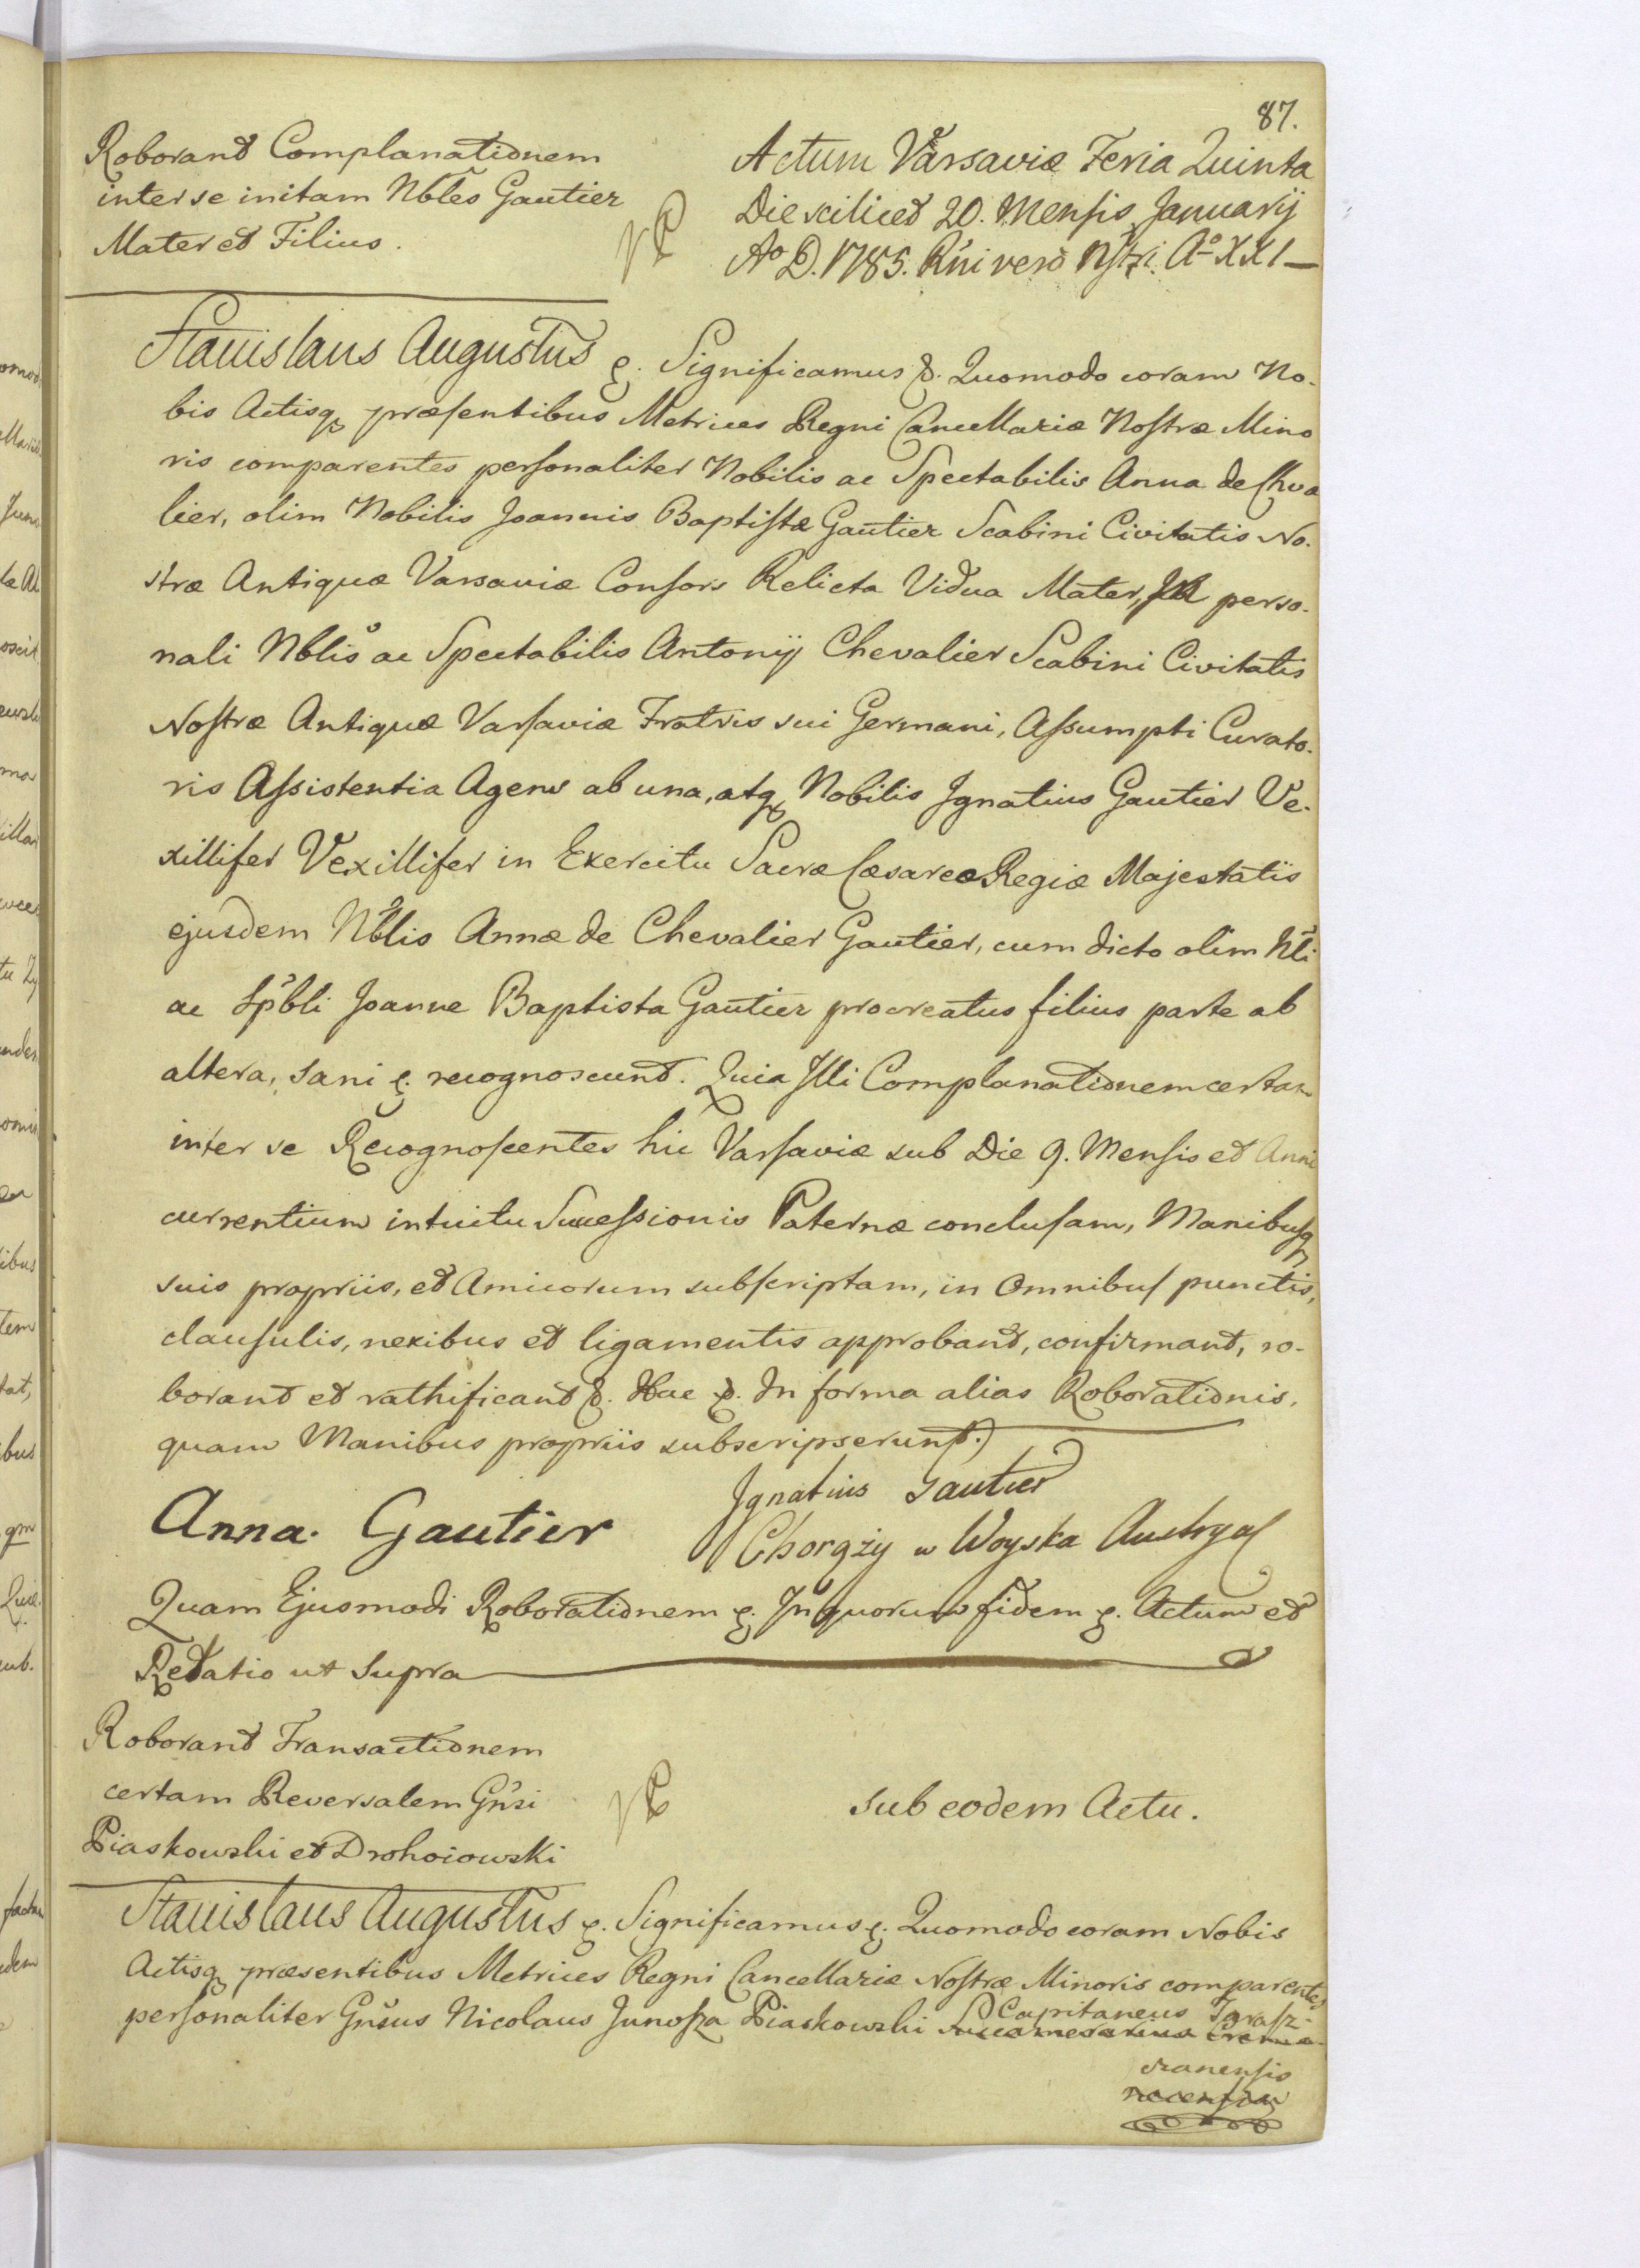 87.
Roborant Complanationem
inter se initam Nbles Gautier
Mater et Filius.
Actum Varsaviæ Feria Quinta
Die scilicet 20. Mensis Januarij
Ao D. 1785. Rni vero Nstri Ao XXI
Stanislaus Augustus &. Significamus &. Quomodo coram No-
bis Actisq præsentibus Metrices Regni Cancellariæ Nostræ Mino
ris comparentes personaliter Nobilis ac Spectabilis Anna de Chva
lier, olim Nobilis Joannis Baptistæ Gautier Scabini Civitatis No-
stræ Antiquæ Varsaviæ Consors Relicta Vidua Mater, perso-
nali Nblis ac Spectabilis Antonij Chevalier Scabini Civitatis
Nostræ Antiquæ Varsaviæ Fratris sui Germani, Assumpti Curato-
ris Assistentia Agens ab una, atq Nobilis Ignatius Gautier Ve-
xillifer Vexillifer in Exercitu Sacræ Cæsareæ Regiæ Majestatis
ejusdem Nblis Annæ de Chevalier Gautier, cum dicto olim Nli
ac Spbli Joanne Baptista Gautier procreatus filius parte ab
altera, sani &. recognoscunt. Quia Illi Complanationem certam
inter se Recognoscentes hic Varsaviæ sub Die 9. Mensis et Anni
currentium intuitu Successionis Paternæ conclusam, Manibusq
suis propriis, et Amicorum subscriptam, in Omnibus punctis,
clausulis, nexibus et ligamentis approbant, confirmant, ro-
borant et rathificant &. Hac &. In forma alias Roborationis,
quam Manibus propriis subscripserunt.)
Anna. Gautier
Ignatius Gautier
Chorąży w Woyska Austryac
Quam Ejusmodi Roborationem &. In quorum fidem &. Actum et
Relatio ut Supra
Roborant Transactionem
certam Reversalem Gnsi
Piaskowski et Drohoiowski
sub eodem Actu.
Stanislaus Augustus &. Significamus &. Quomodo coram Nobis
Actisq præsentibus Metrices Regni Cancellariæ Nostræ Minoris comparentes
personaliter Gnsus Nicolaus Junosza Piaskowski Capitaneus Tarasz-
czanensis